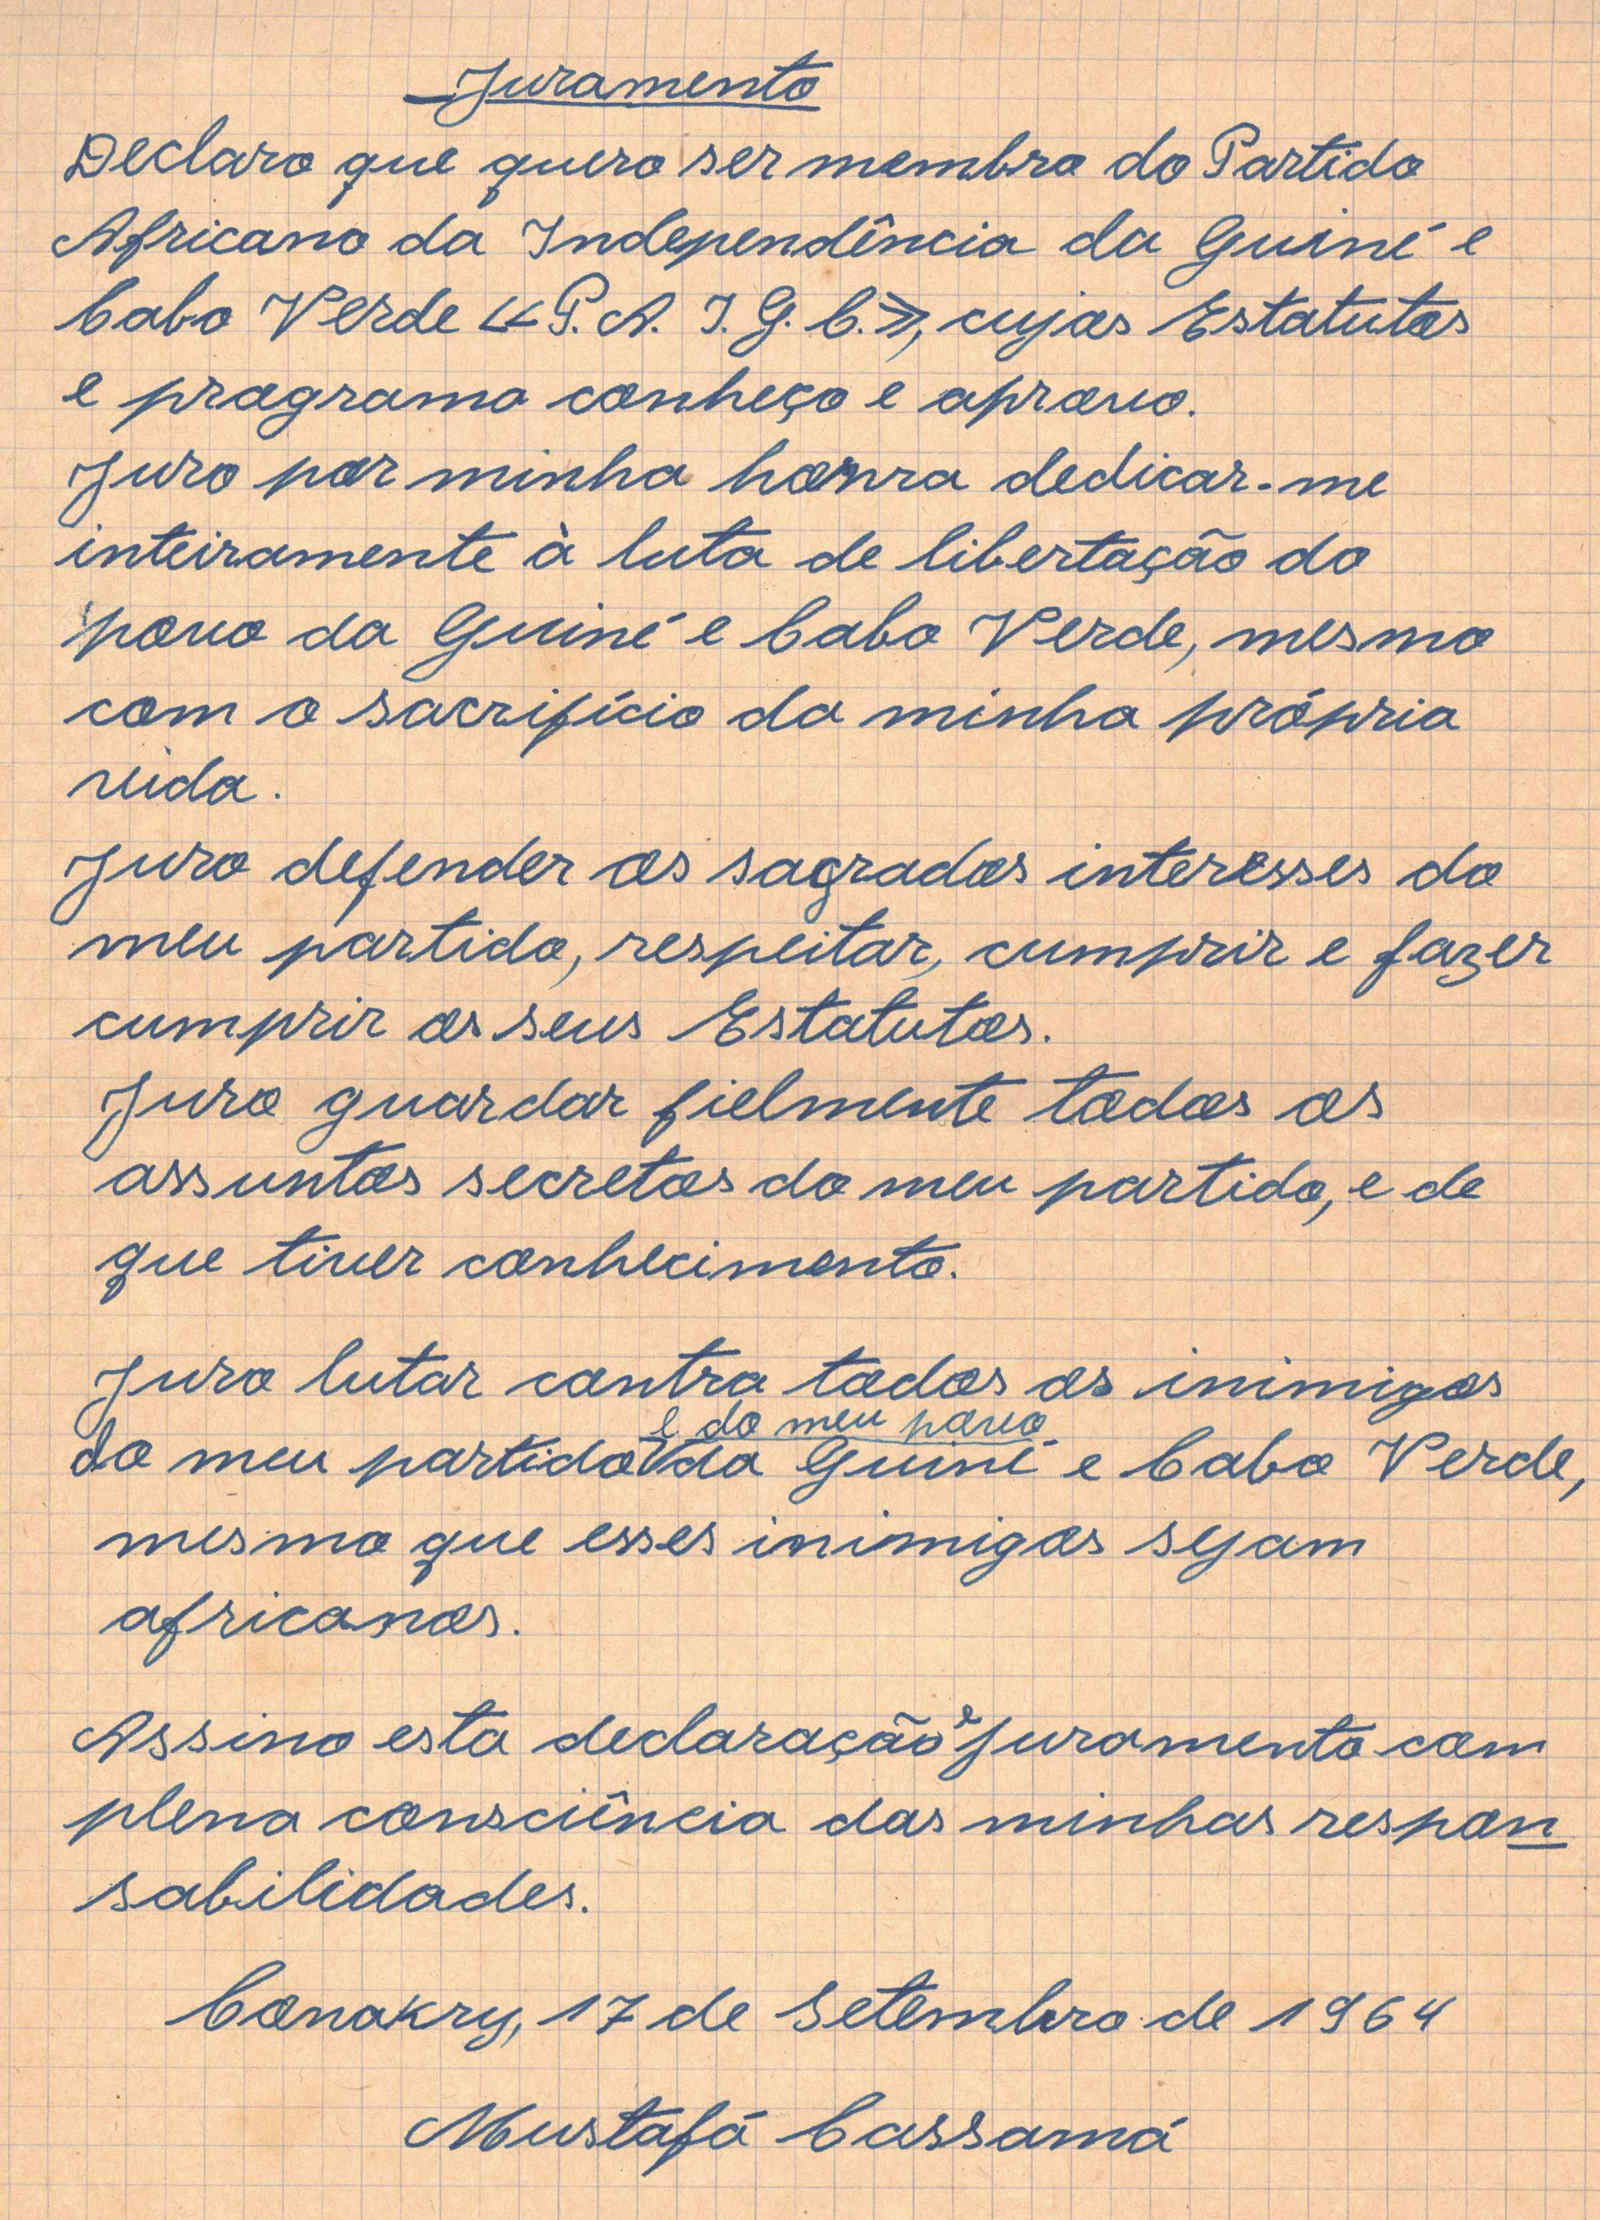 Juramento
Declaro que quero ser membro do Partido
Africano da Independência da Guiné e
Cabo Verde «P. A. I. G. C.», cujos Estatutos
e programa conheço e aprovo.
Juro por minha honra dedicar-me
inteiramente à luta de libertação do
povo da Guiné e Cabo Verde, mesmo
com o sacrifício da minha própria
vida.
Juro defender os sagrados interesses do
meu partido, respeitar, cumprir e fazer
cumprir os seus Estatutos.
Juro guardar fielmente todos os
assuntos secretos do meu partido, e de
que tiver conhecimento.
Juro lutar contra todos os inimigos
do meu partido e do meu povo da Guiné e Cabo Verde,
mesmo que esses inimigos sejam
africanos.
Assino esta declaração e juramento com
plena consciência das minhas respon
sabilidades.
Conakry, 17 de Setembro de 1964
Mustafá Cassamá